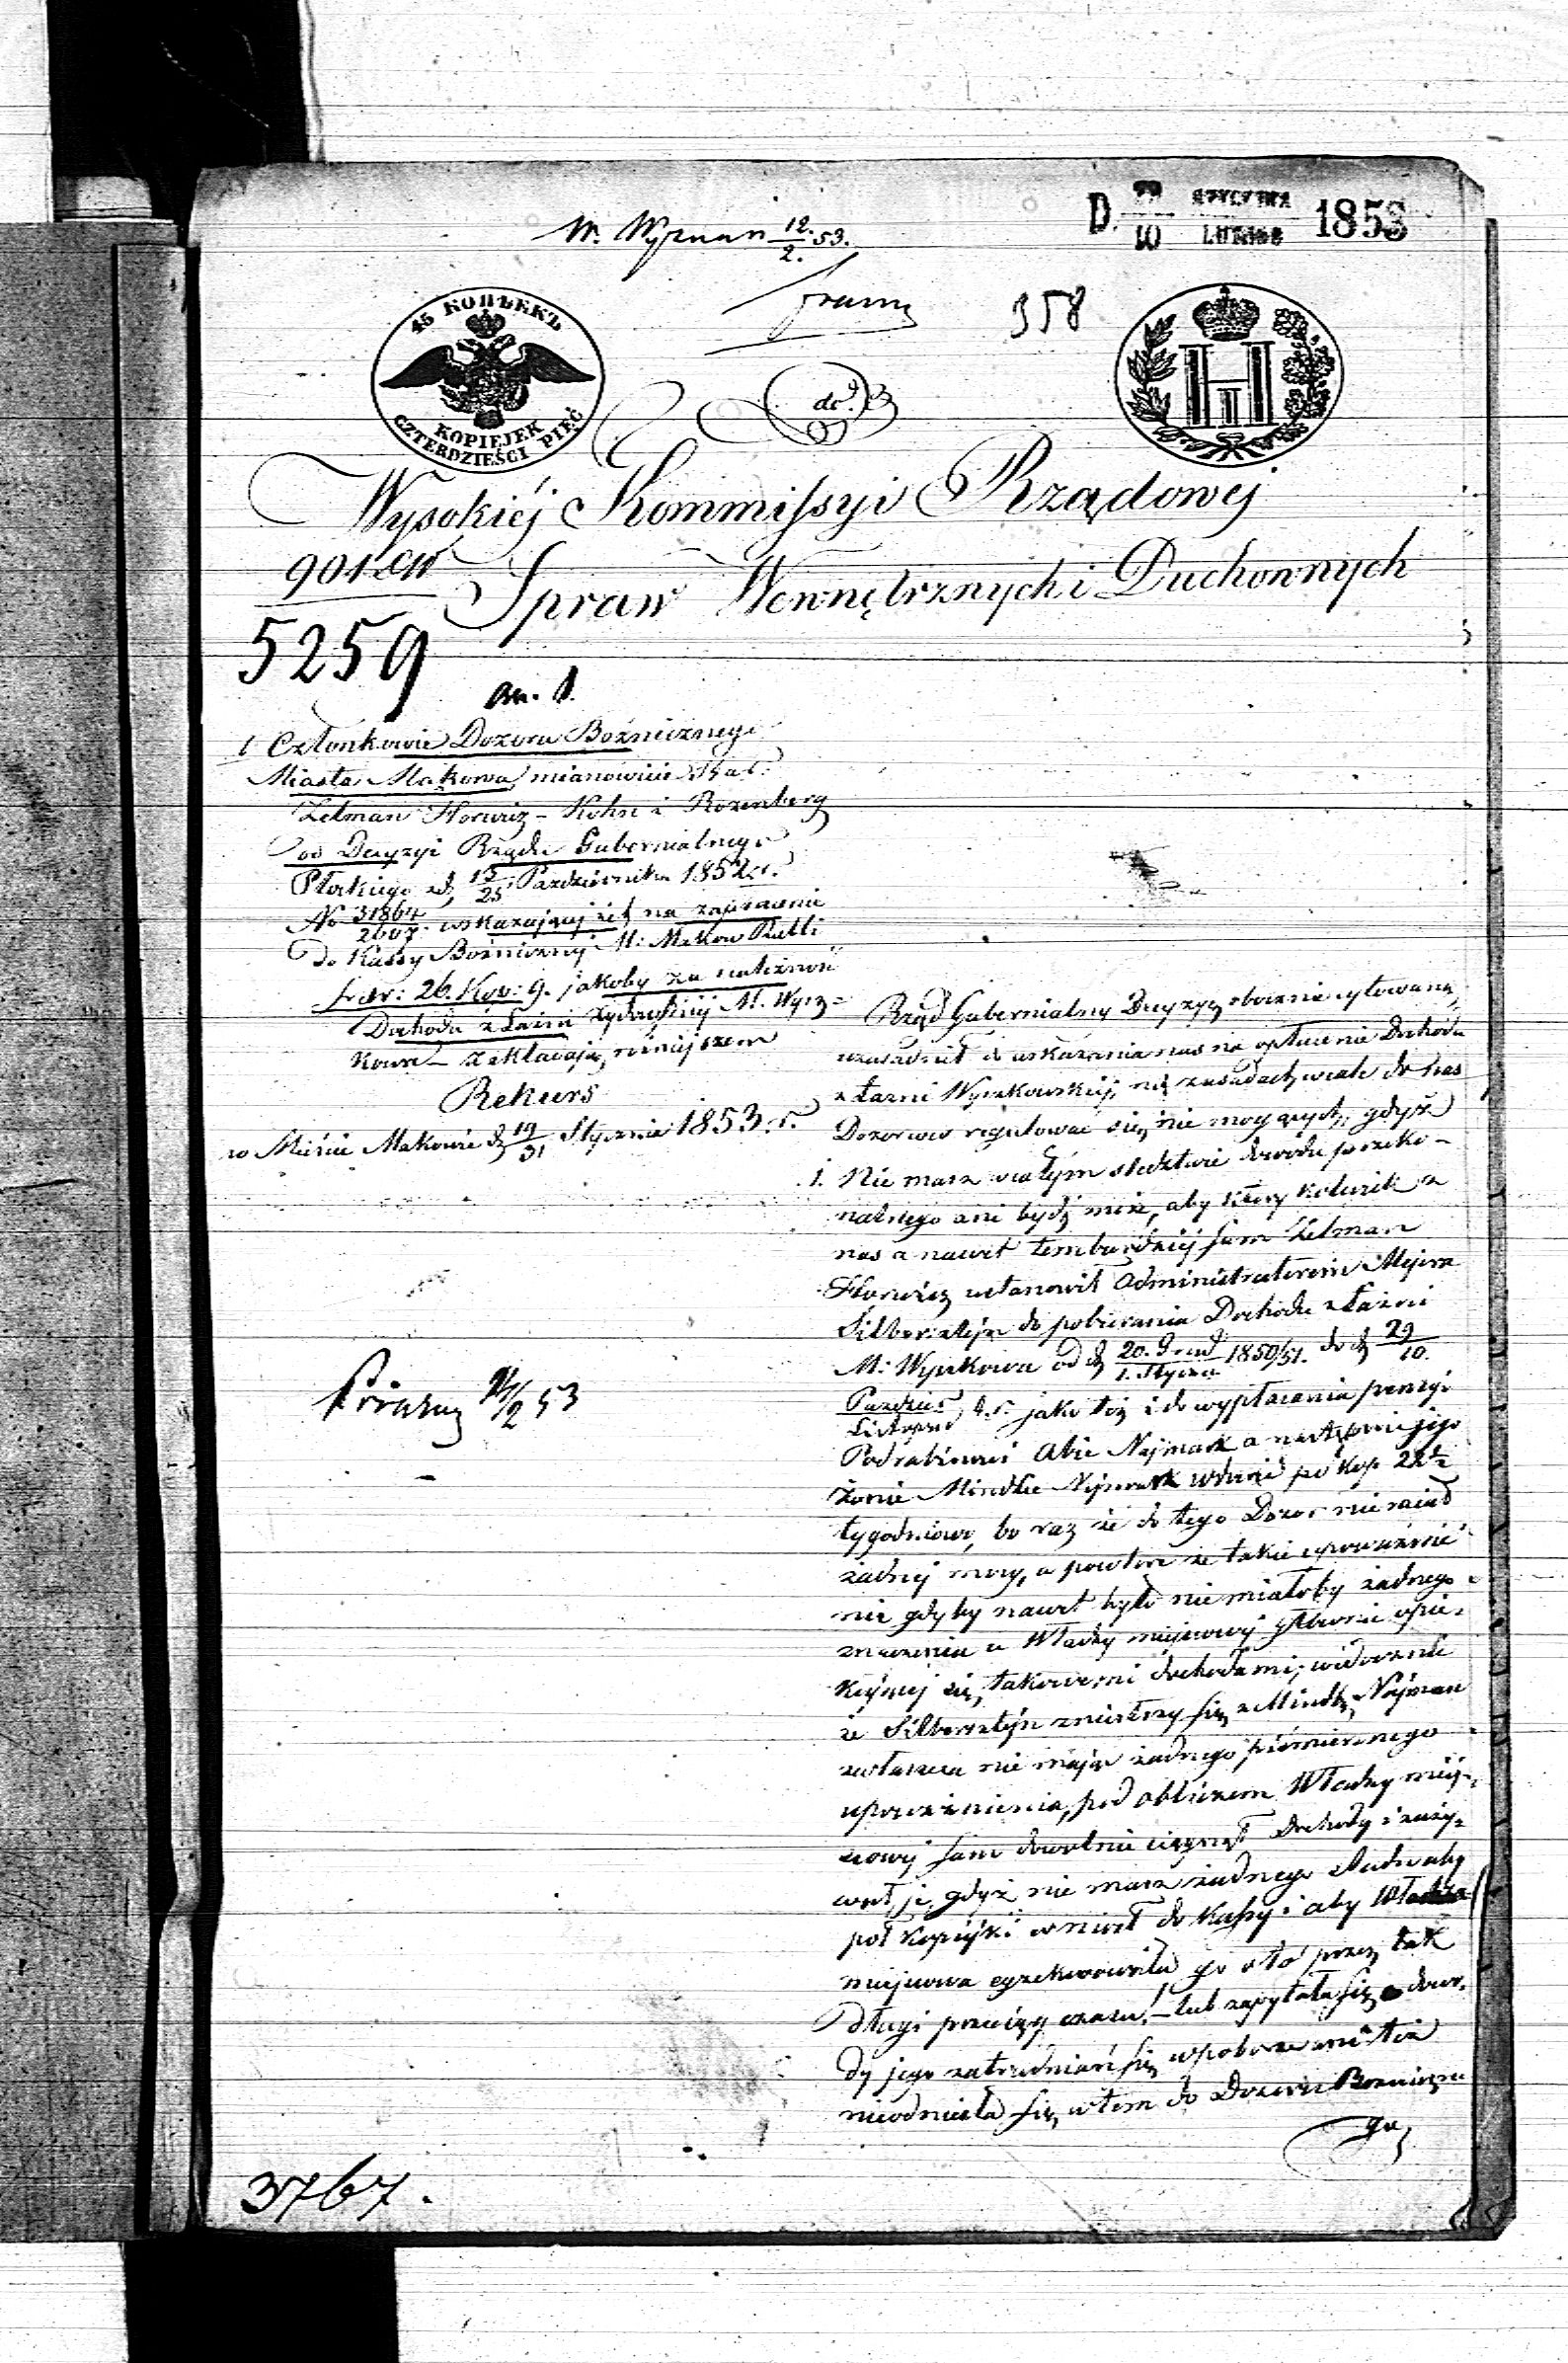 W. Wyznań 12/2. 53.
D. 29/10 STYCZNIA LUTEGO 1853
358
45 КОПѢЕКЪ
KOPIEJEK
CZTERDZIEŚCI PIĘĆ
do
Wysokiéj Kommissyi Rządowej
901
Spraw Wewnętrznych i Duchownych
5259
an. 1.
Członkowie Dozoru Bożnicznego
Miasta Makowa, mianowicie
Zelman Horwicz - Kohn i Rozenberg
od Decyzyi Rządu Gubernialnego
Płockiego z d. 13/25 Pazdziernika 1852 r.
No 31864/2607 wskazującej ich na zapłacenie
do Kassy Bożnicznej M: Makow Rubli
srbr: 26. Kop: 9. jakoby za należność
Dochodu z Łaźni Żydowskiej M. Wysz-
kowa - zakładają niniejszem
Rekurs
w Mieście Makowie d. 19/31 Stycznia 1853 r.
Rząd Gubernialny Decyzyą obocznie cytowaną,
uzasadnił do wskazania nas na opłacenie Dochodu
z Łazni Wyszkowskiej, na zasadach wcale do nas
Dozorców regulować się nie mogących, gdyż
1. Nie masz w całym śledztwie dowodu przeko-
nalnego ani bydź może, aby który kolwiek z
nas a nawet tembardziej sam Zelman
Horwicz ustanowił Administratorem Mejera
Silbersztejn do pobierania Dochodu z Łaźni
M: Wyszkowa od d. 20. Grud/1. Stycznia 1850/51. do d. 29/10.
Pazdzier/Listopad r. jako też i do wypłacania pensyi
Podrabinowi Abie Najmark a następnie jego
żonie Mindle Najmark wdowie po kop 22½
tygodniowo, bo raz że do tego Dozor nie miał
żadnej mocy, a powtóre że takie upoważnie
nie gdyby nawet było nie miałoby żadnego
znaczenia u Władzy miejscowej głównie opie-
kującej się takowemi dochodami; widocznie
że Silbersztejn zniosłszy się z Mindlą Najman
zwłaszcza nie mając żadnego piśmiennego
upoważnienia, pod obliczem Władzy miej-
scowej sam dowolnie ciągnął dochody i zuży-
wał je, gdyż nie masz żadnego śladu aby
pół kopiejki wniósł do Kassy i aby Władza
miejscowa egzekwowała go o to przez tak
długi przeciąg czasu! - lub zapytała się o dowo-
dy jego zatrudniań się w poborze ani też
nieodniosła się w tem do Dozoru Bożniczne
go,
11/2 53
3767.